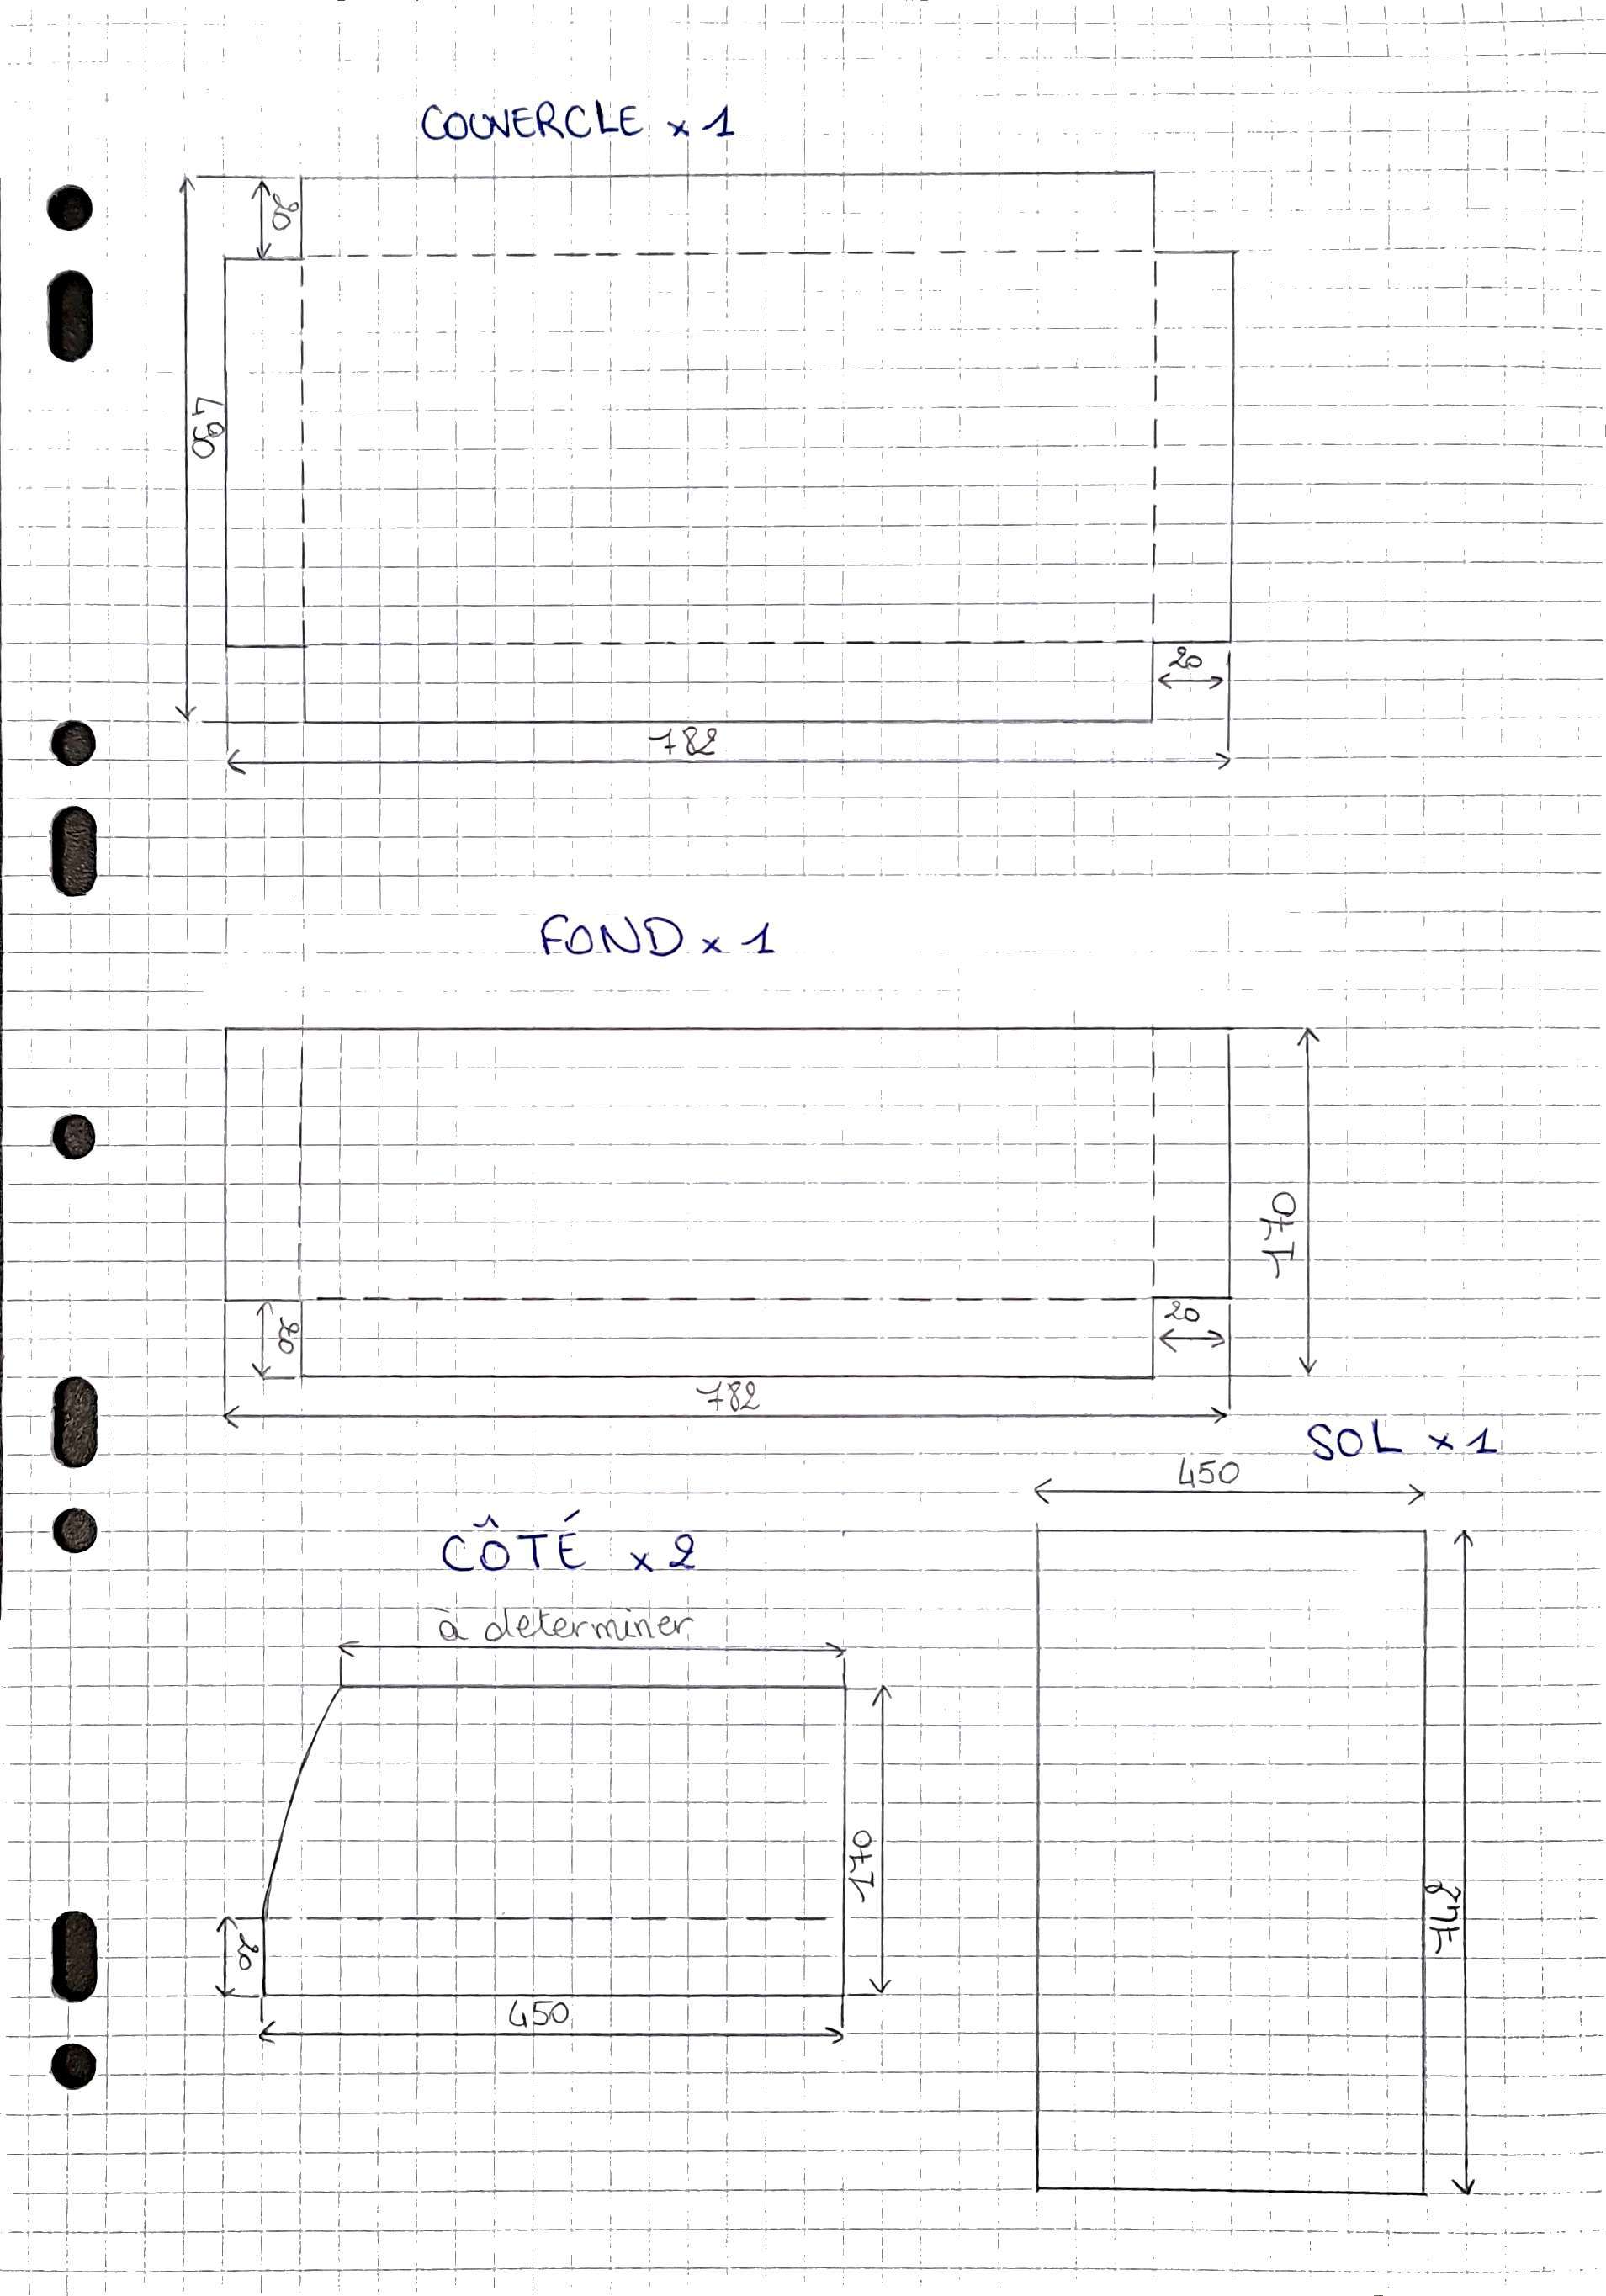 COUVERCLE x 1
20
490
20
782
FOND x 1
170
20
20
782
SOL x 1
450
CÔTÉ x 2
à determiner
170
742
20
450